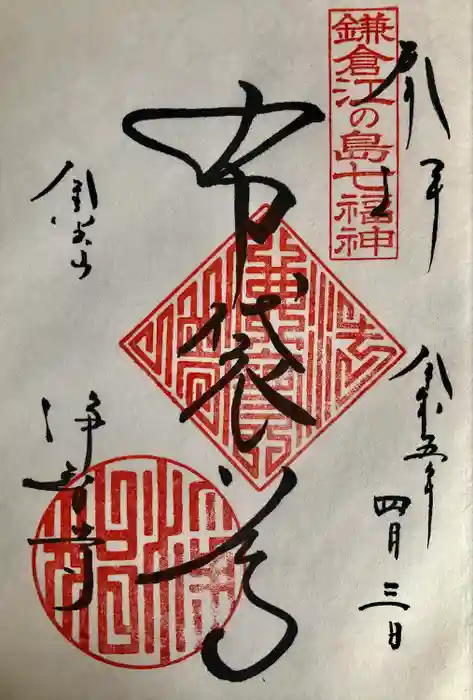 鎌倉江の島七福神
奉拝
令和五年
四月三日
布袋尊
金宝山
浄智寺